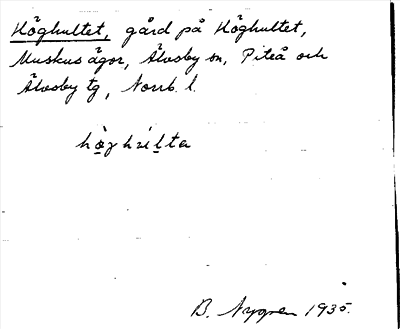 Höghultet, gård på Höghultet,
Muskus ägor, Älvsby sn, Piteå och
Älvsby tg, Norrb. l.
B. Nygren 1935.